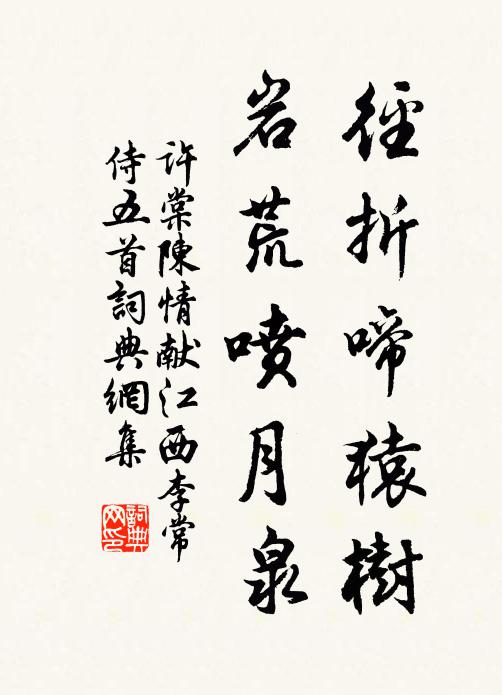 徑折啼猿樹
岩荒喷月泉
许棠陳情献江西李常
侍五首詞典網集
詞典
网印